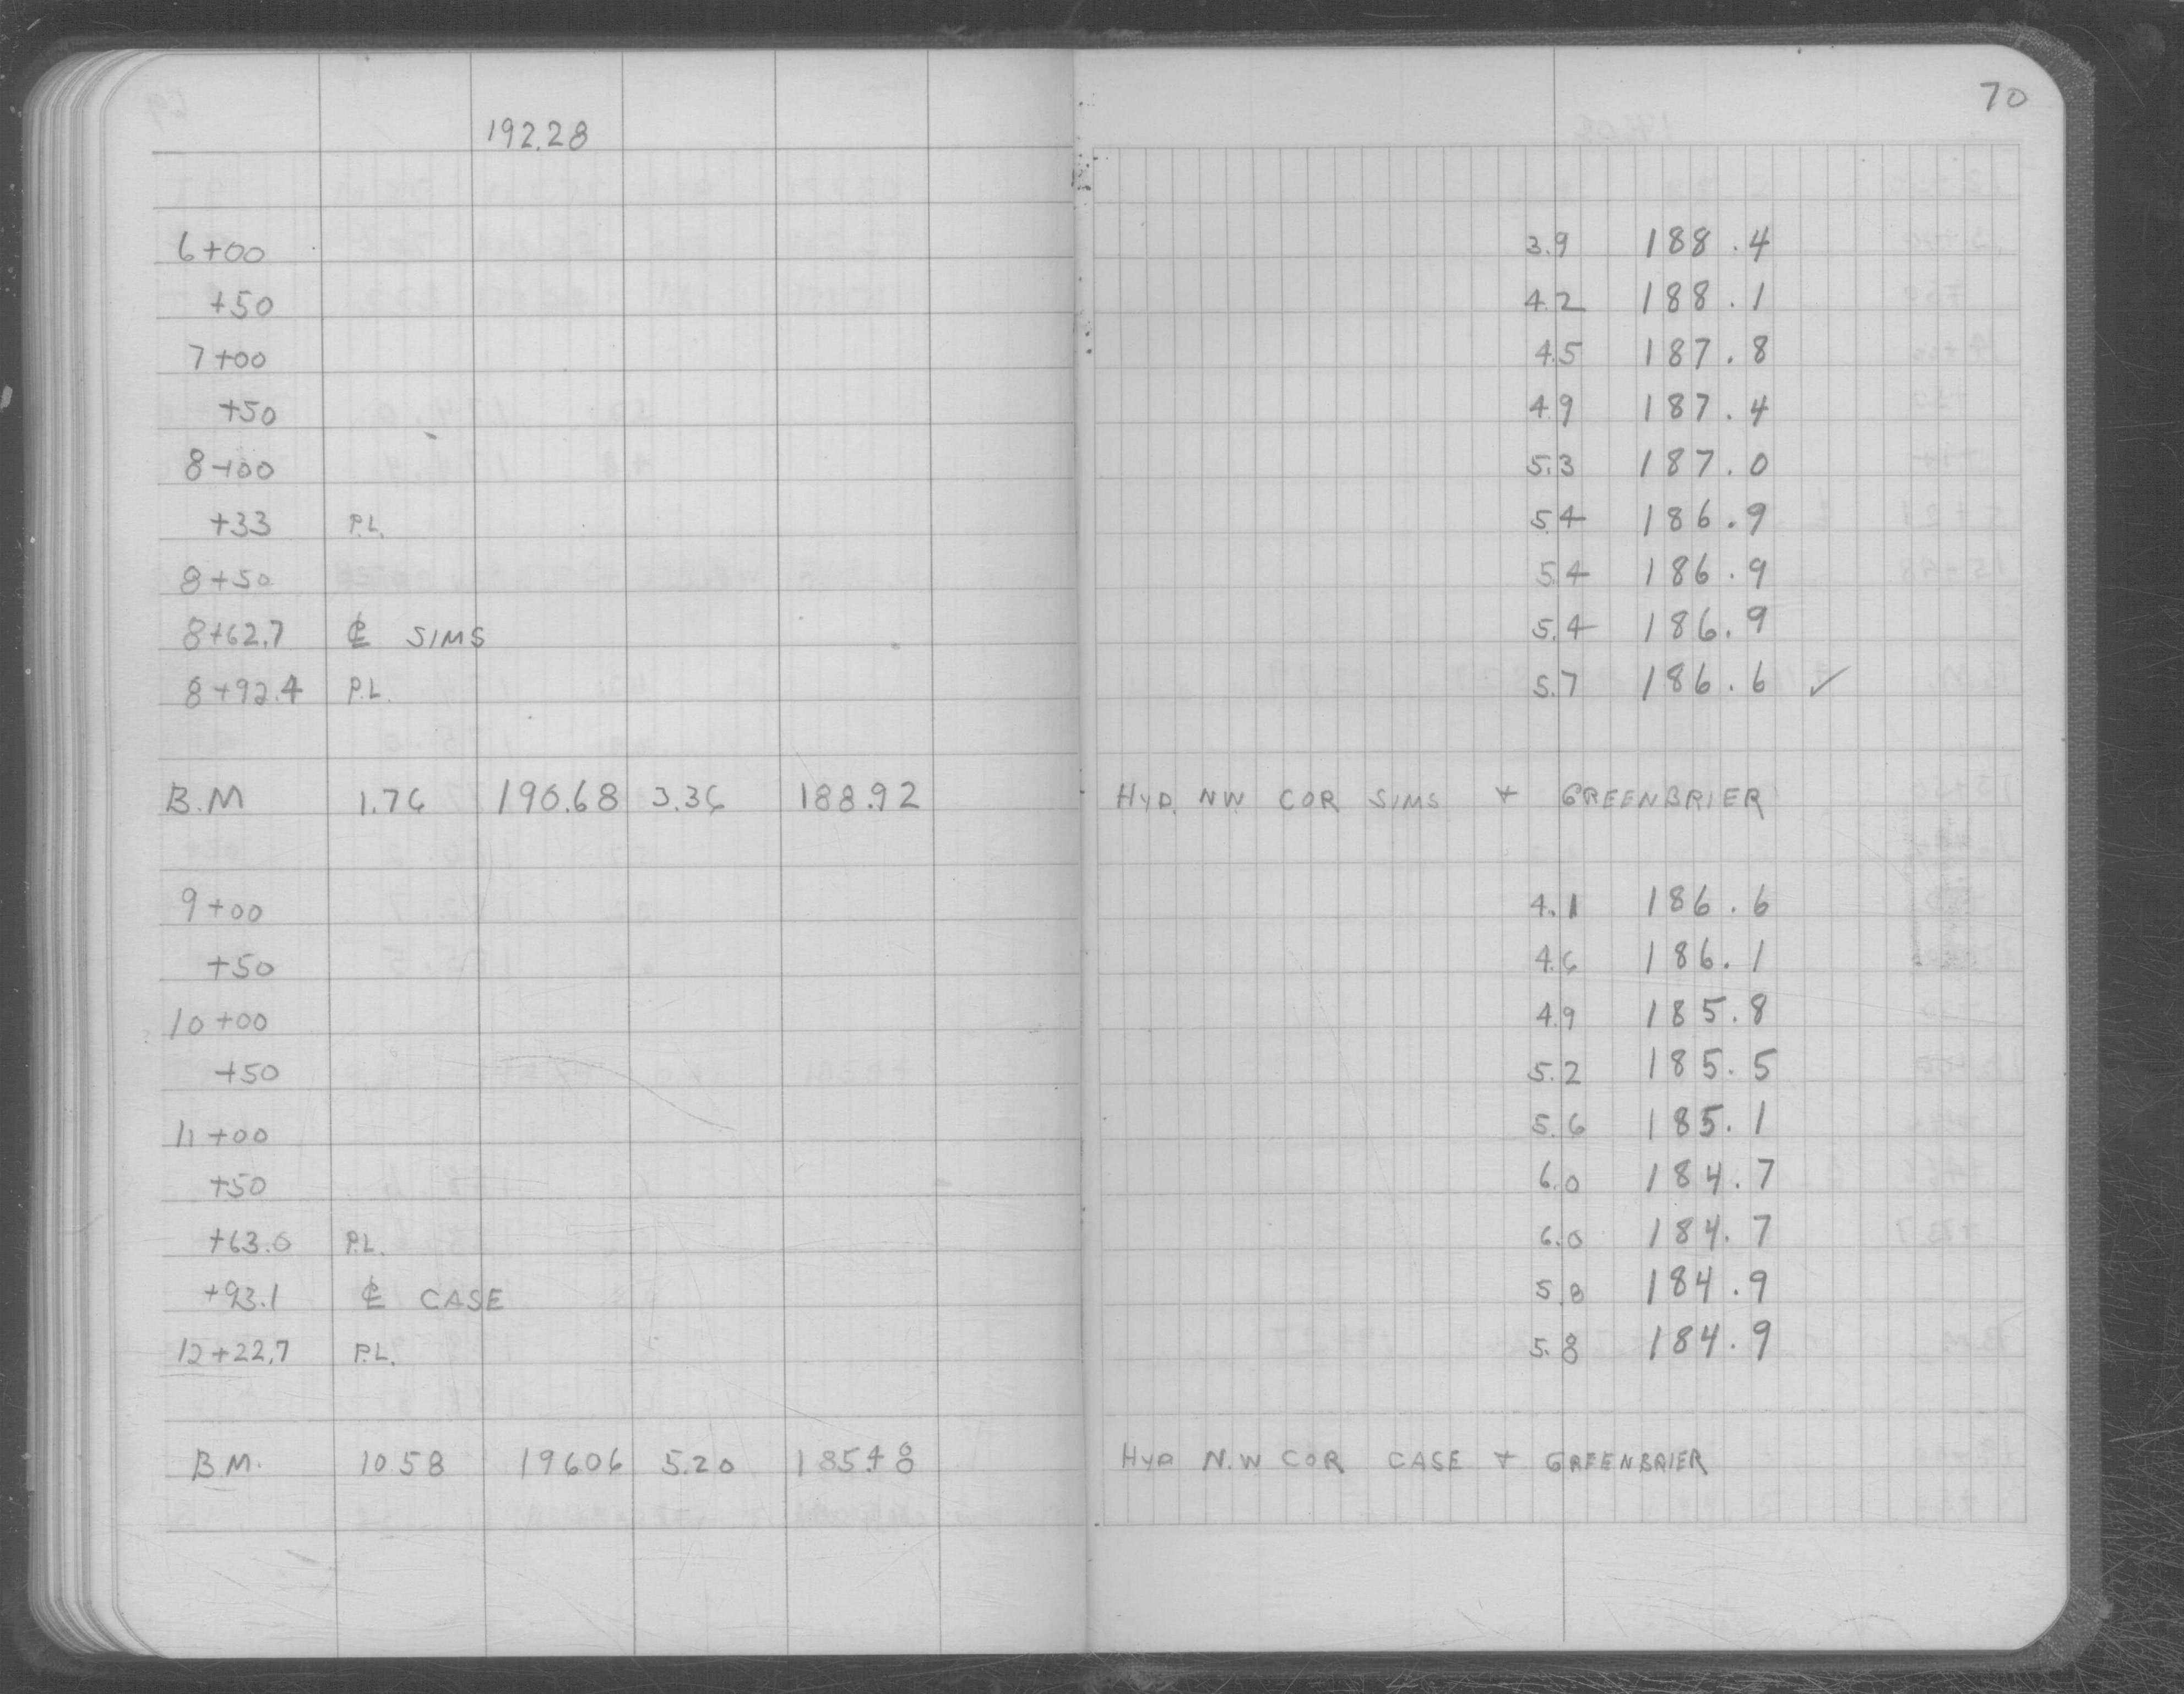 70
192.28
6+00 3.9 188.4
+50 4.2 188.1
7+00 4.5 187.8
+50 4.9 187.4
8+00 5.3 187.0
+33 P.L. 5.4 186.9
8+50 5.4 186.9
8+62.7 ℄ SIMS 5.4 186.9
8+92.4 P.L. 5.7 186.6 ✓
B.M 1.76 190.68 3.36 188.92 HYD. NW COR SIMS + GREENBRIER
9+00 4.1 186.6
+50 4.6 186.1
10+00 4.9 185.8
+50 5.2 185.5
11+00 5.6 185.1
+50 6.0 184.7
+63.0 P.L. 6.0 184.7
+93.1 ℄ CASE 5.8 184.9
12+22.7 P.L. 5.8 184.9
B.M. 10 58 196 06 5.20 185.48 HYD N.W COR CASE + GREENBRIER